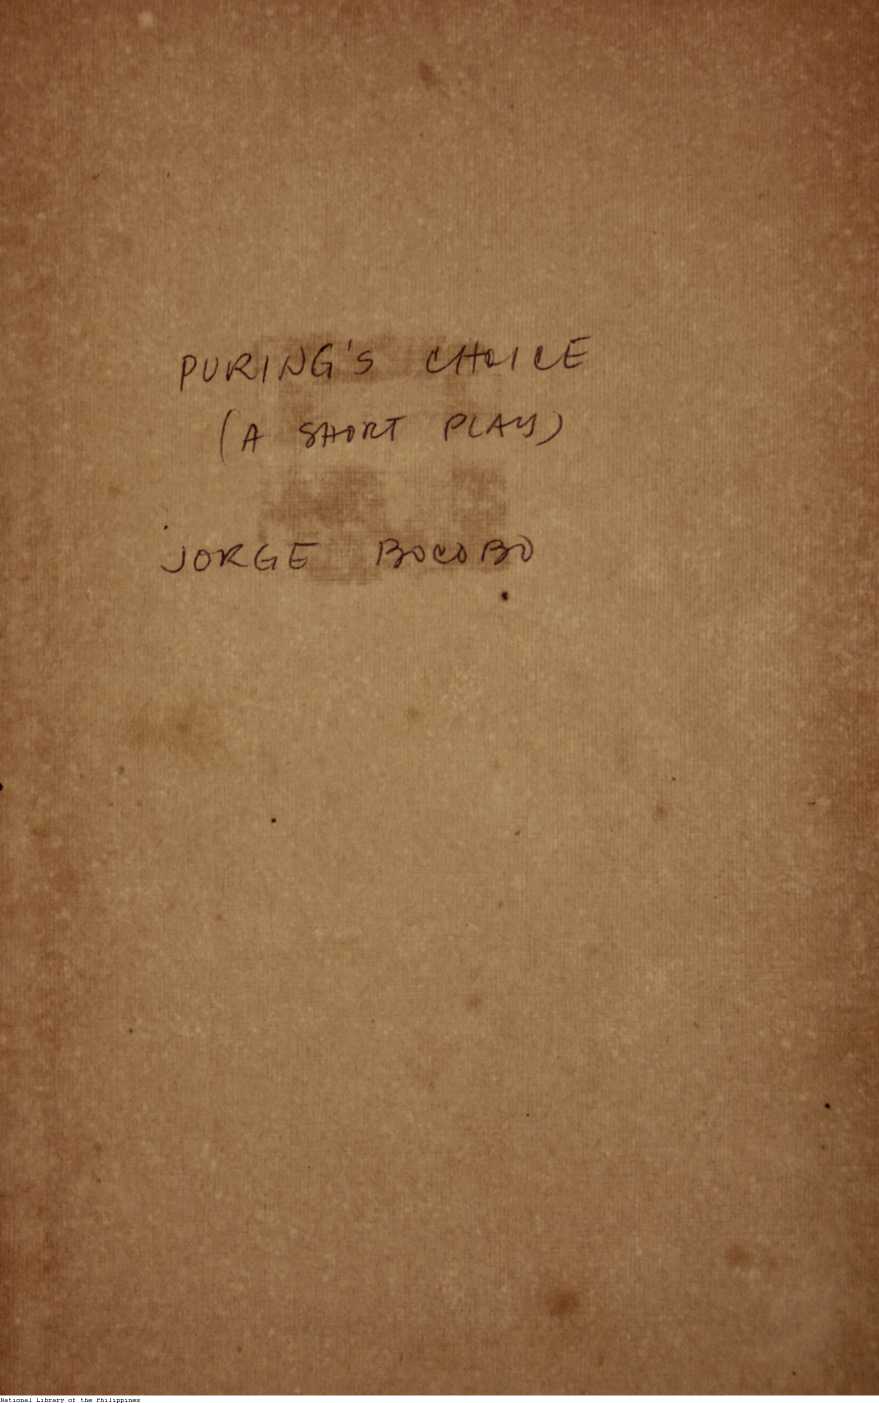 PURING'S CHOICE
(A SHORT PLAY)
JORGE BOCOBO
National Library of the Philippines